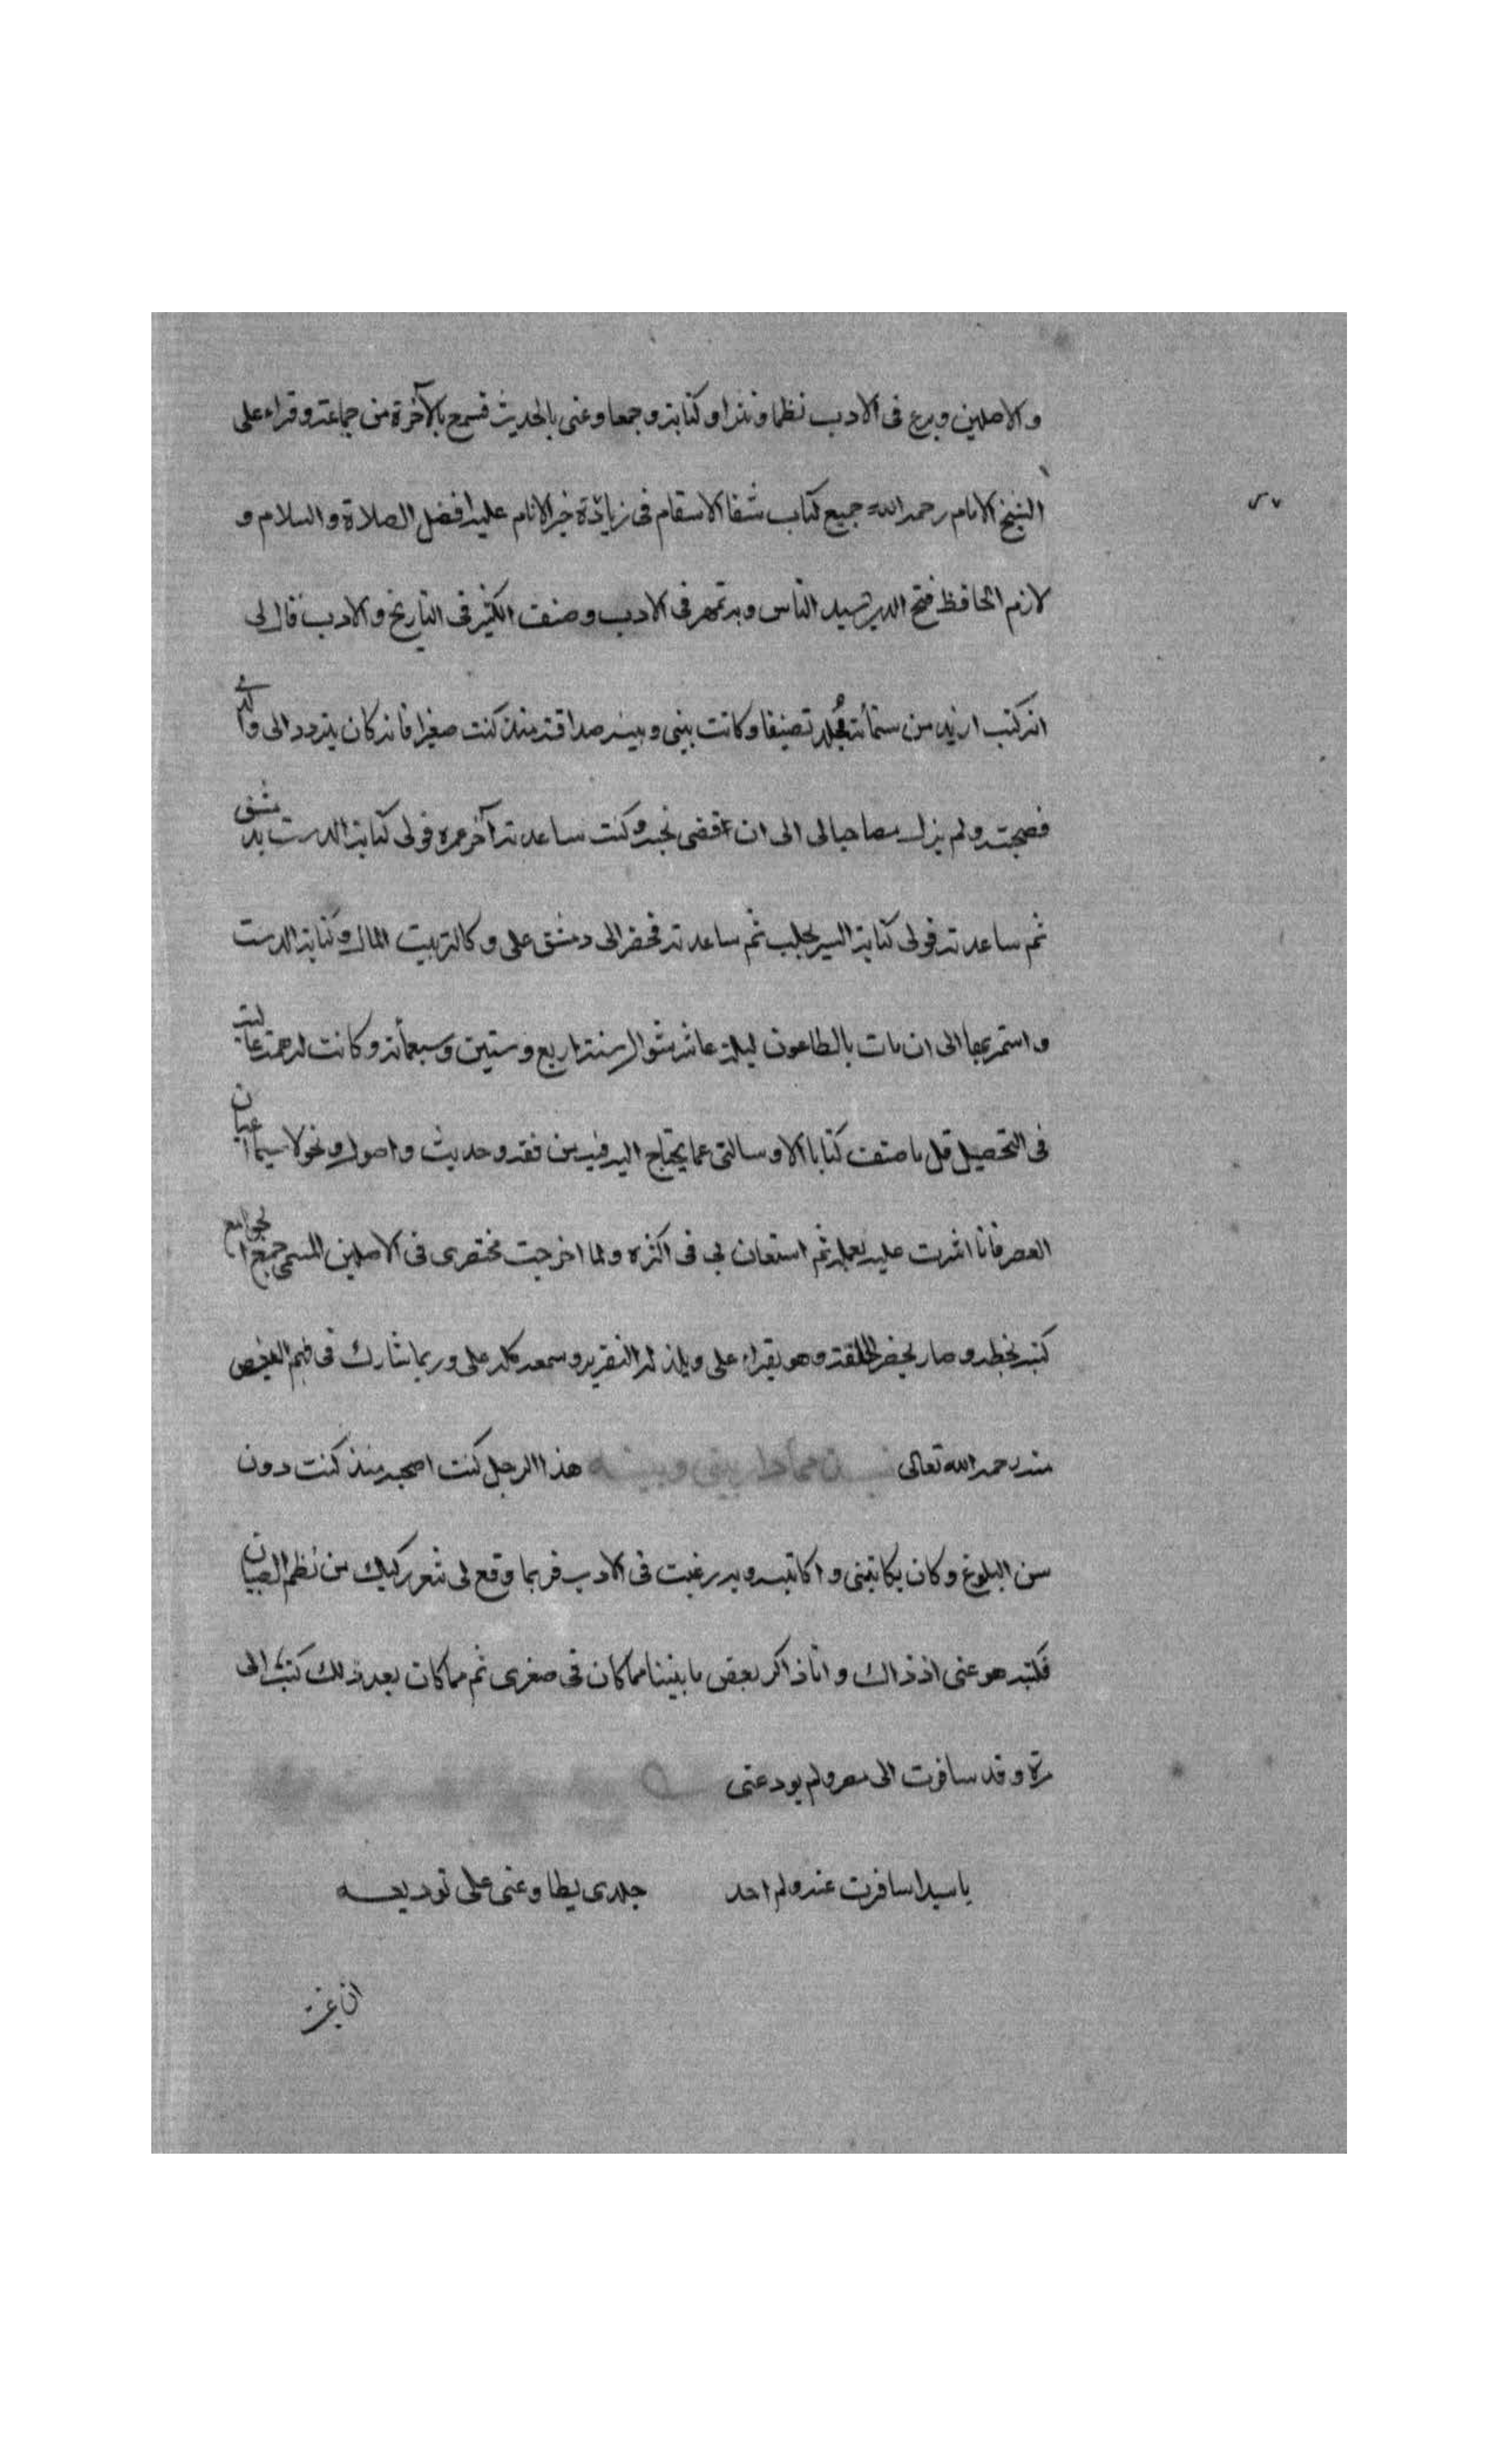 والاصلين وبرع فى الادب نظما ونثرا وكتابة وجمعا وعنى بالحديث فسمع بالآخرة من جماعة وقراء على
الشيخ الامام رحمه الله جميع كتاب شفا الاسقام فى زيادة خير الانام عليه افضل الصلاة والسلام و
لازم الحافظ فتح الدين سيد الناس وبه تمهر فى الادب وصنف الكثير فى التاريخ والادب قال لى
انه كتب ازيد من ستمأئة مجلد تصنيفا وكانت بينى وبينه صداقة منذ كنت صغيرا فانه كان يتردد الى والدى
فصحبته ولم يزل مصاحبا لى الى ان قضى نحبه وكنت ساعدته آخر عمره فولى كتابة الدست بدمشق
ثم ساعدته فولى كتابة السر بحلب ثم ساعدته فحضر الى دمشق على وكالة بيت المال وكتابة الدست
واستمر بها الى ان مات بالطاعون ليلة عاشر شوال سنة اربع وستين وسبعمأئة وكانت له همة عالية
فى التحصيل قل ما صنف كتابا الا وسالنى عما يحتاج اليه فيه من فقه وحديث واصول ونحو لا سيما اعيان
العصر فانا اشرت عليه بعمله ثم استعان بى فى اكثره ولما اخرجت مختصرى فى الاصلين المسمى جمع الجوامع
كتبه بخطه وصار يحضر الحلقة وهو يقراء على ويلذ له التقرير وسمعه كله على وربما شارك فى فهم البعض
منه رحمه الله تعالى هذا الرجل كنت اصحبه منذ كنت دون
سن البلوغ وكان يكاتبنى واكاتبه وبه رغبت فى الادب فربما وقع لى شعر ركيك من نظم الصبيان
فكتبه هو عنى اذ ذاك وانا ذاكر بعض ما بيننا مما كان فى صغرى ثم مما كان بعد ذلك كتبت الى
مرة وقد سافرت الى مصر ولم يودعنى
يا سيدا سافرت عنه ولم اجد جلدى يطاوعنى على توديعه
ان غبت